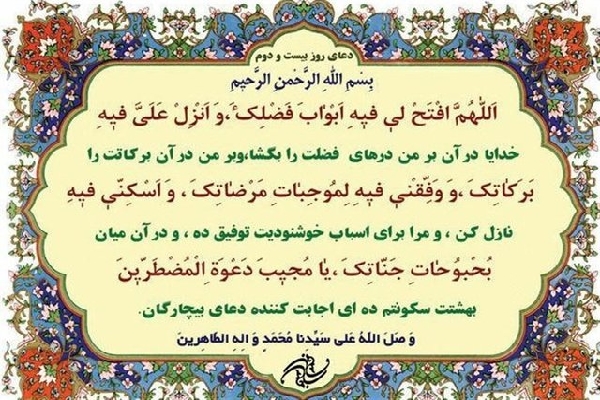 دعای روز بیست و دوم
بِسْمِ اللهِ الرَّحْمنِ الرَّحیمِ
اَللّهُمَّ افْتَحْ لی فیهِ اَبْوابَ فَضْلِکَ ،وَ اَنْزِلْ عَلَیَّ فیهِ
خدایا در آن بر من درهای فضلت را بگشا،وبر من در آن برکاتت را
بَرَکاتِکَ ،وَ وَفِّقْنی فیهِ لِمُوجِباتِ مَرْضاتِکَ ، وَ اَسْکِنّی فیهِ
نازل کن ، و مرا برای اسباب خوشنودیت توفیق ده ، و در آن میان
بُحْبُوحاتِ جَنّاتِکَ ،یا مُجیبَ دَعْوَةِ الْمُضْطَرّینَ
بهشتت سکونتم ده ای اجابت کننده دعای بیچارگان.
وَ صَلَ اللهُ عَلی سَیِّدنا مُحَمَدٍ وَ الِهِ الطّاهِرینَ